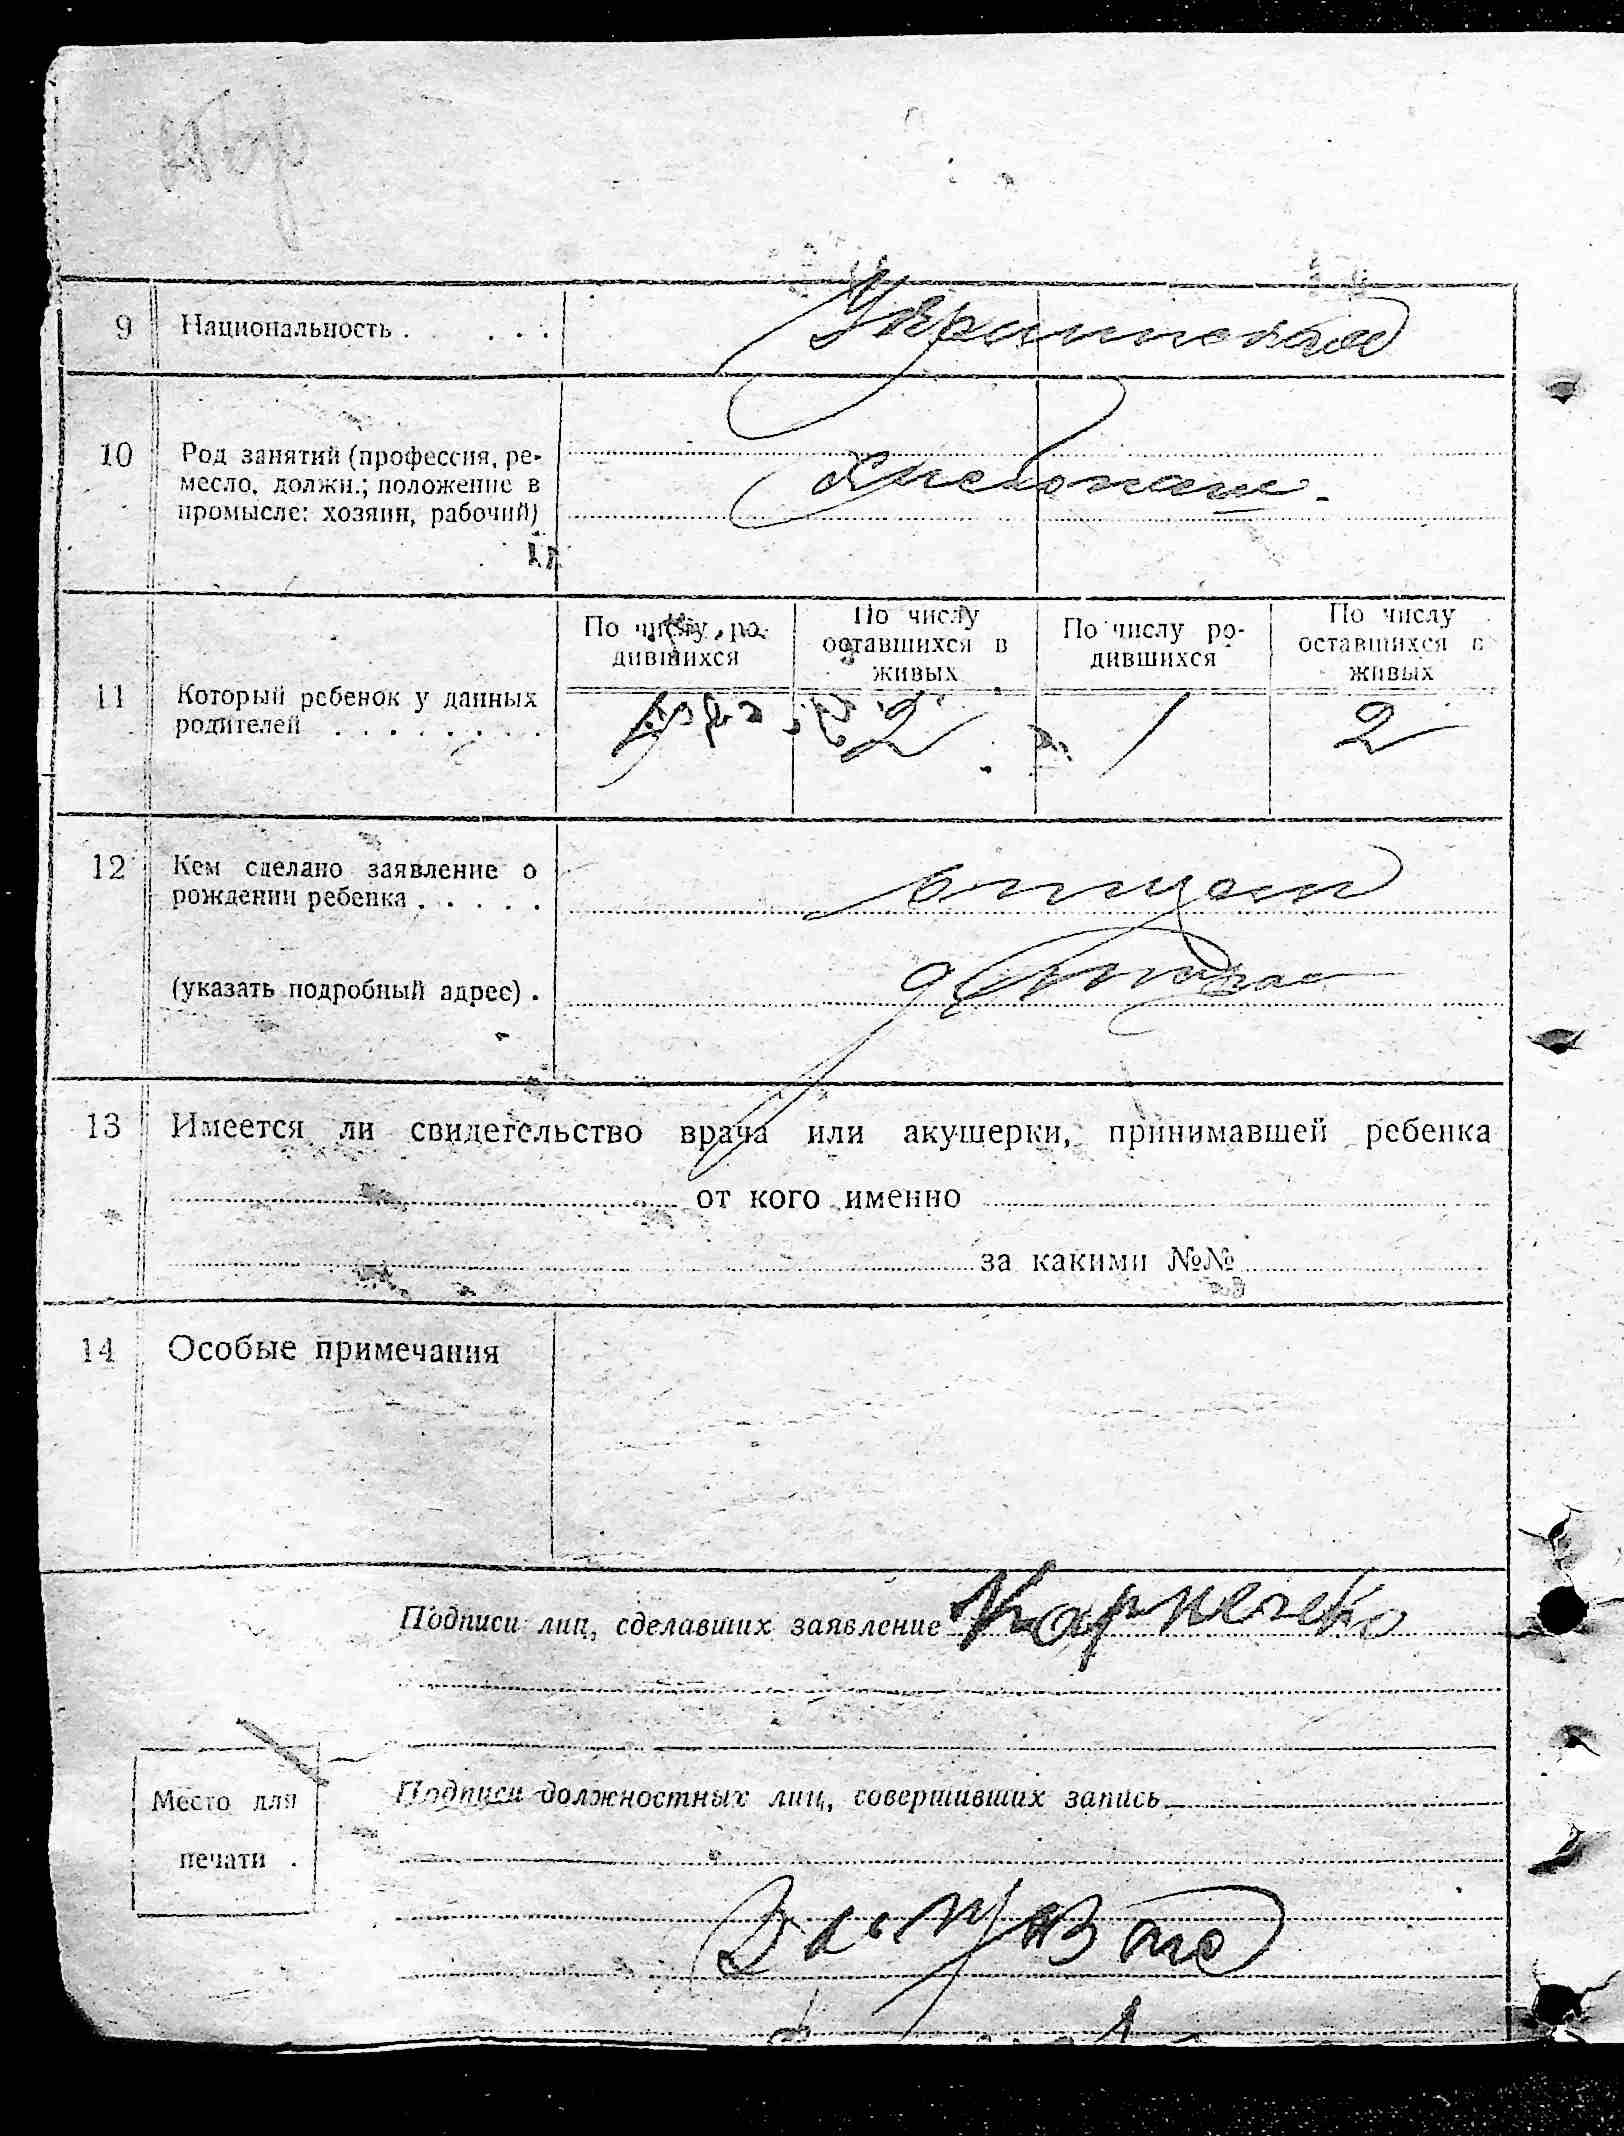 9 Национальность . . . . Украинская
10 Род занятий (профессия, ре-
месло, должн.; положение в
промысле: хозяин, рабочий)
Хлебопаш.
11 Который ребенок у данных
родителей . . . . . . . .
По числу ро-
дившихся
По числу
оставшихся в
живых
По числу ро-
дившихся
По числу
оставшихся в
живых
2 1 2
12 Кем сделано заявление о
рождении ребенка . . . . .
отцом
(указать подробный адрес) .
13 Имеется ли свидетельство врача или акушерки, принимавшей ребенка
от кого именно
за какими №№
14 Особые примечания
Подписи лиц, сделавших заявление Карпенко
Место для
печати
Подписи должностных лиц, совершивших запись